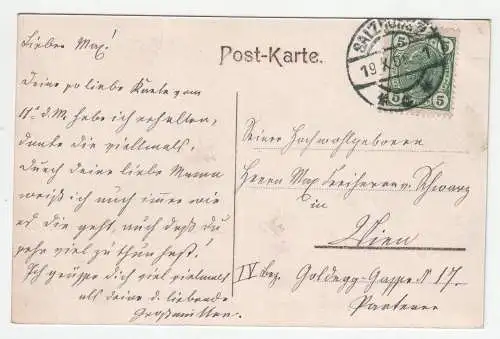 Post-Karte.
SALZBURG
5 5
5 5
Lieber Max!
Deine so liebe Karte vom
11. d. M. habe ich erhalten,
danke dir vielmals.
Durch deine liebe Mama
weiß ich auch immer wie
es dir geht, auch daß du
sehr viel zu thun hast!
Ich grüße dich viel vielmals
als deine d. liebende
Großmutter.
Seiner Hochwohlgeboren
Herrn Max Freiherrn v. Schwarz
in
Wien
IV Bez. Goldegg-Gasse N 17.
Parterre